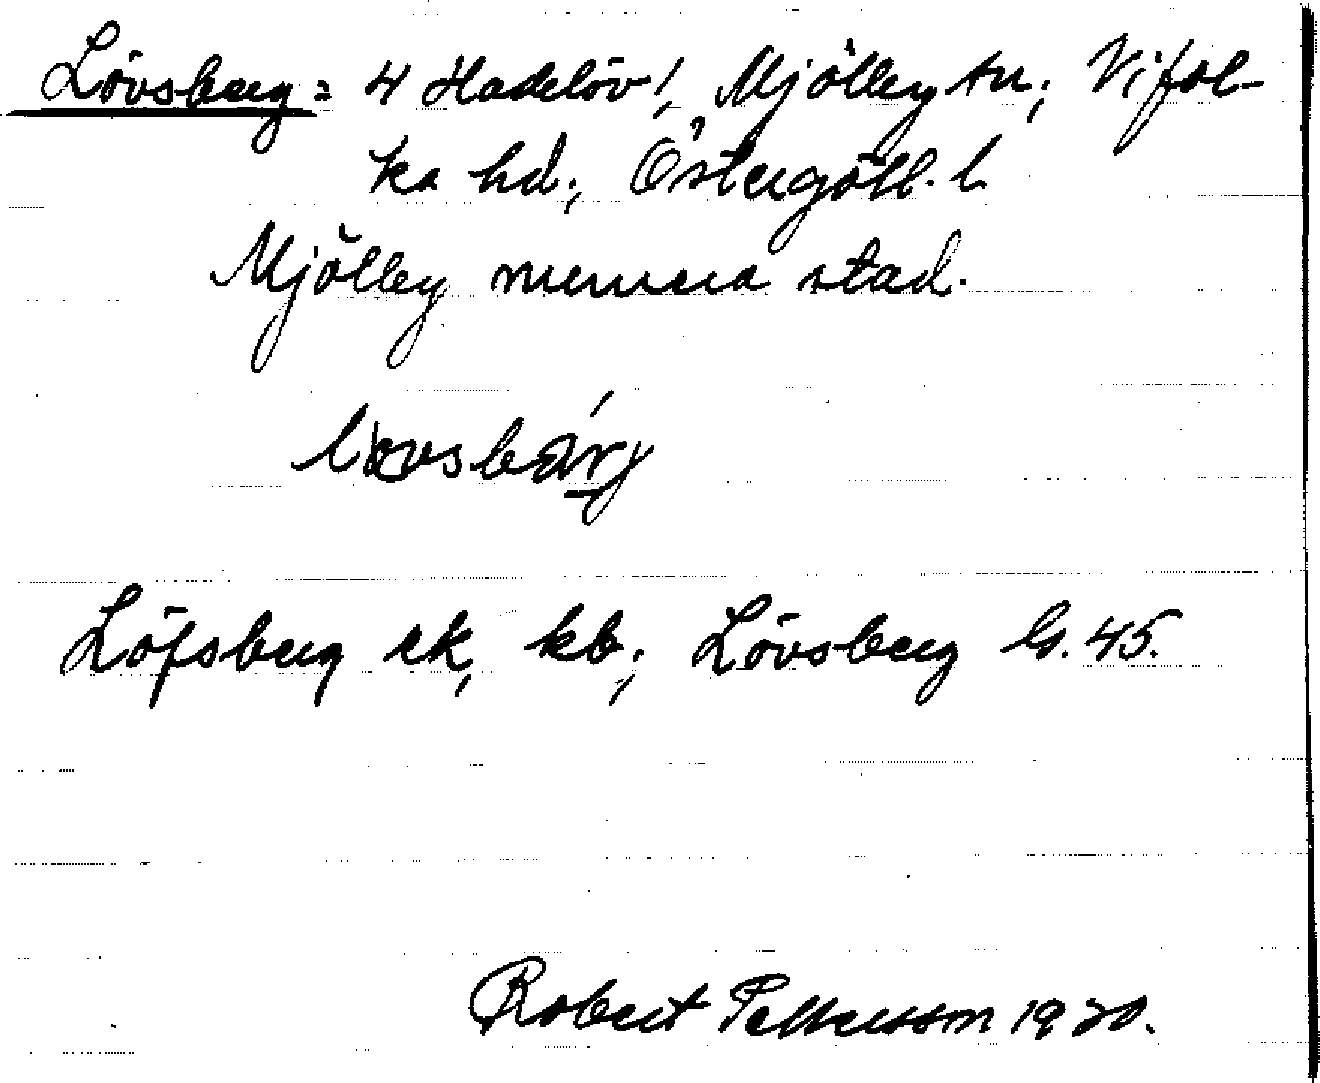 Lövsberg = 4 Hadelöv!, Mjölby sn; Vifol-
ka hd; Östergötl. l.
Mjölby numera stad.
Löfsberg ek, kb; Lövsberg G. 45.
Robert Pettersson 1920.